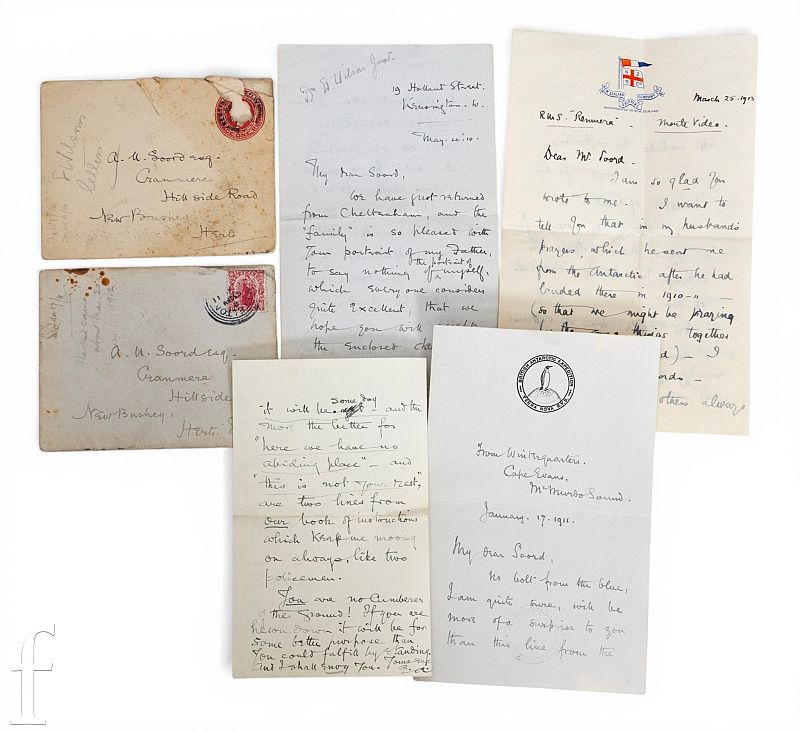 A. U. Soord esq.
Cranmere
Hillside Road
New Bushey
Herts.
letters
A. U. Soord Esq.
Cranmere
Hillside
New Bushey,
Herts.
Dr. E. Wilson Junr.
19 Holland Street.
Kensington. W.
My dear Soord,
We have just returned
from Cheltenham, and the
"family" is so pleased with
your portrait of my Father,
to say nothing of the portrait of myself,
which every one considers
quite excellent, that we
hope you will
the enclosed
March 25. 1913
R.M.S. "Remuera" - Monte Video.
Dear Mr Soord -
I am so glad you
wrote to me. I want to
tell you that in my husband's
prayers, which he sent me
from the Antarctic after he had
landed there in 1910-11 -
(so that we might be praying
things together
) - I
others always
it will be some day - and the
more the better for
"here we have no
abiding place" - and
"this is not your rest",
are two lines from
our book of instructions
which keep me moving
on always, like two
policemen.
You are no Cumberer
of the Ground! If you are
hewn down it will be for
some better purpose than
you could fulfill by standing
and I shall envy you.
BRITISH ANTARCTIC EXPEDITION
TERRA NOVA R.Y.S.
From Winterquarters.
Cape Evans,
McMurdo Sound.
January. 17. 1911.
My dear Soord,
No bolt from the blue,
I am quite sure, will be
more of a surprise to you
than this line from the
f